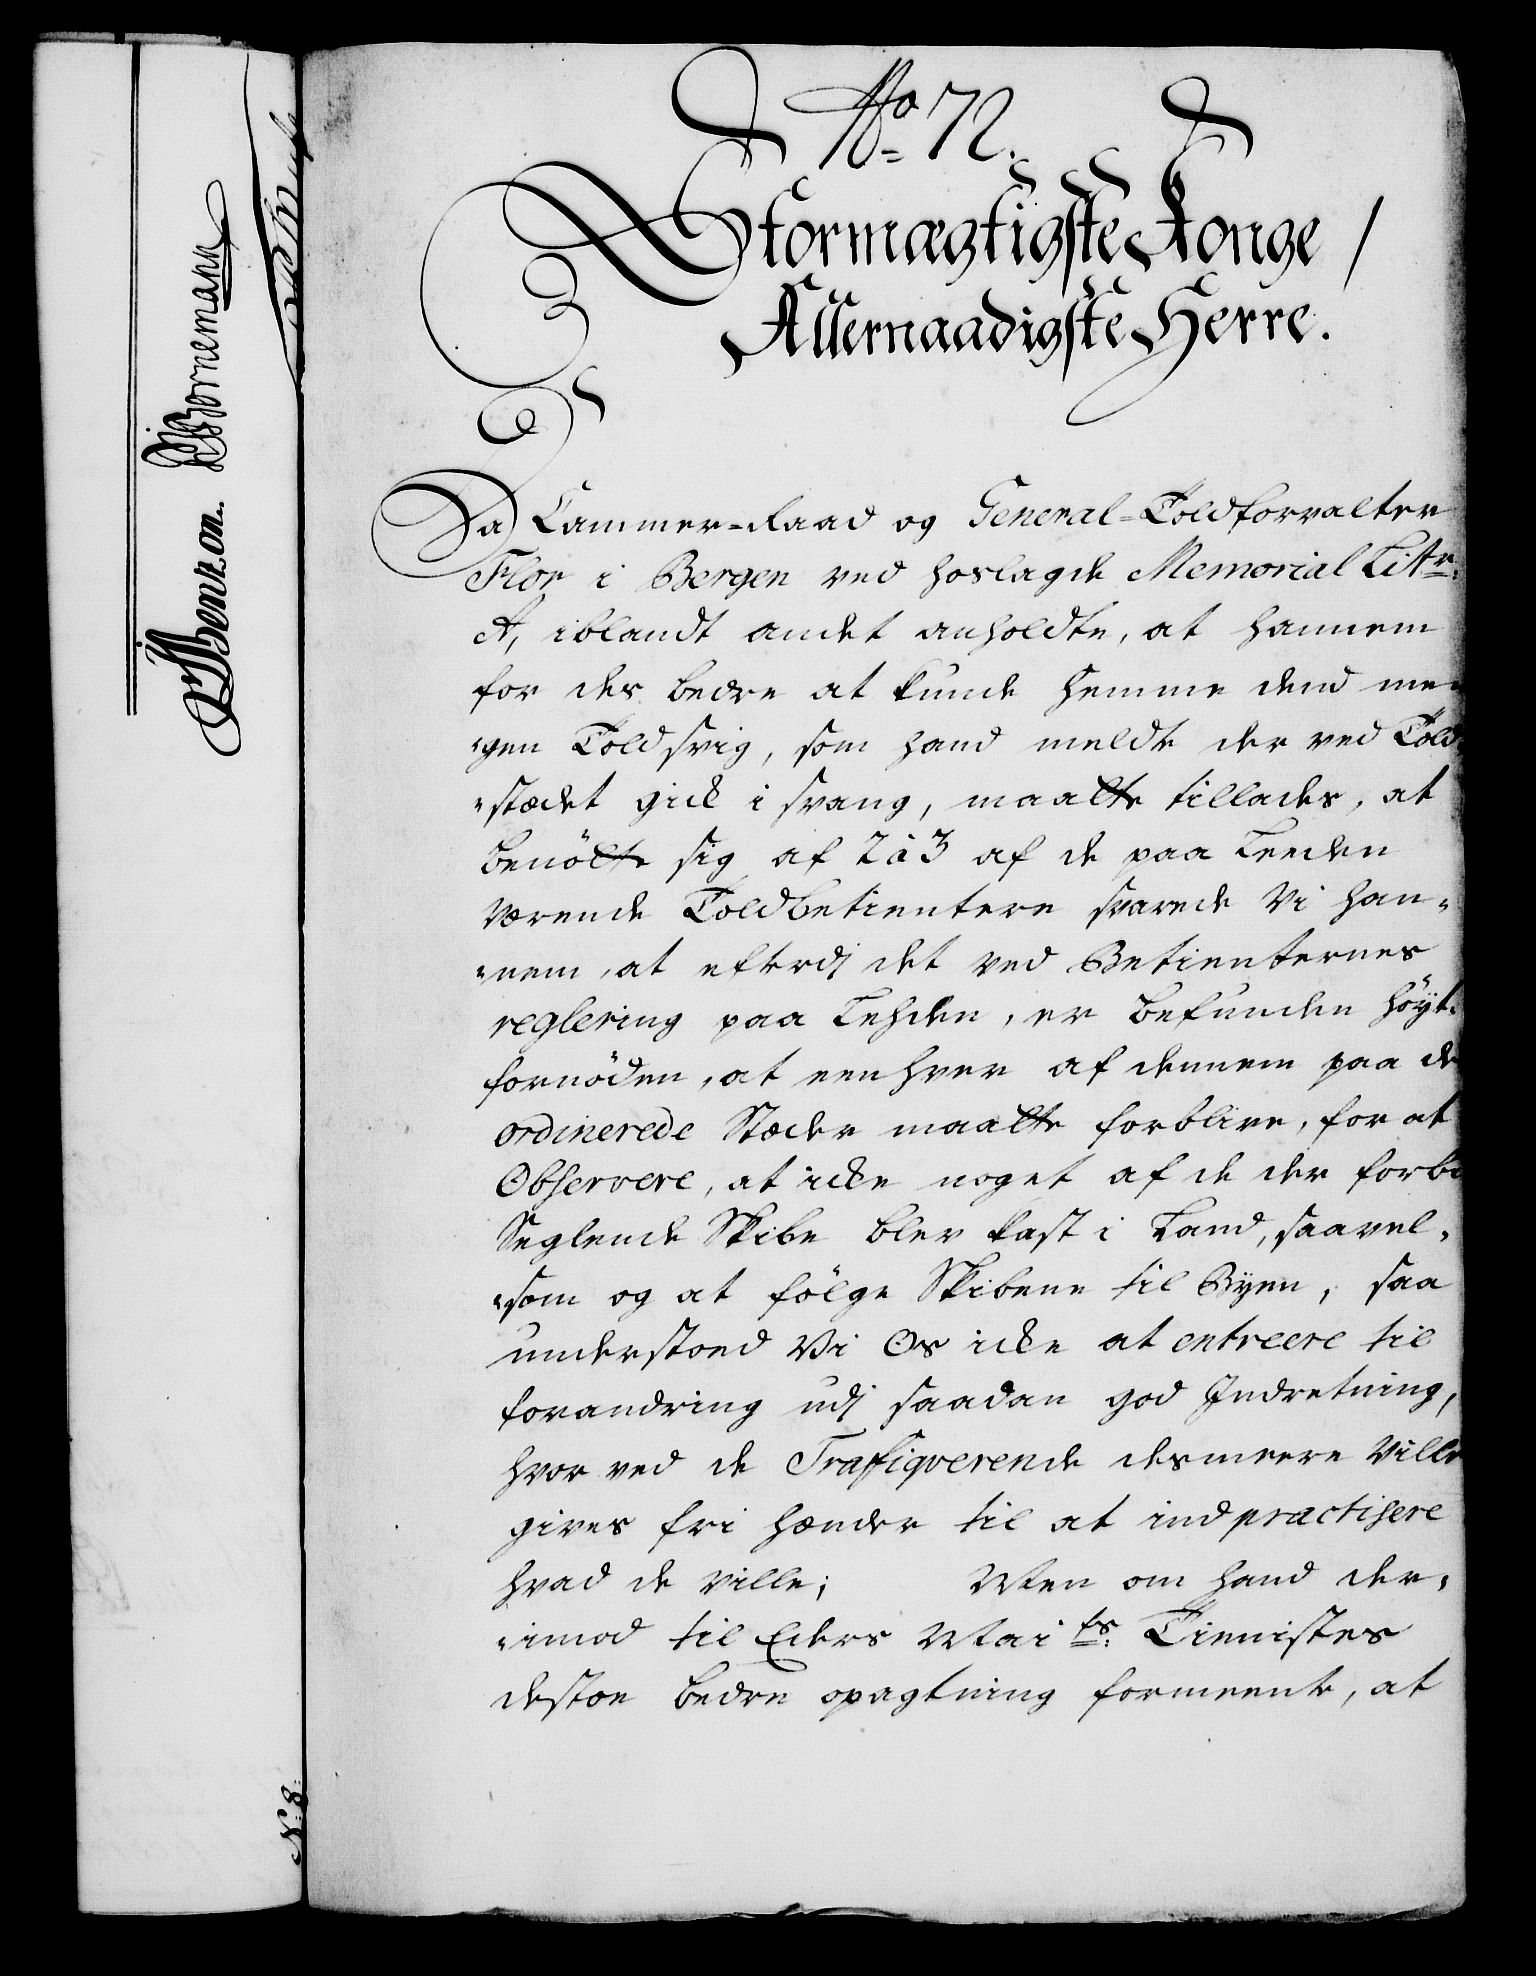 No 72.
Stormægtigste Konge /
Allernaadigste Herre.
Da Cammer-Raad og General-Toldforvalter
Flor i Bergen ved hoslagde Memorial Litr:
A, iblandt andet anholdte, at hannem
for des bedre at kunde hemme dend me-
-gen Toldsvig, som hand meldte der ved Told
-stædet gick i svang, maatte tillades, at
benötte sig af 2 à 3 af de paa Leeden
værende Toldbetientere svarede Vi han-
-nem, at efterdj det ved Betienternes
reglering paa Lehden, er befunden höyt
fornöden, at eenhver af dennem paa de
ordinerede Stæder maatte forblive, for at
Observere, at icke noget af de der forbi
Seglende Skibe blev kast i Land, saavel-
-som og at fölge Skibene til Byen, saa
understoed Vi Os icke at entreere til
forandring udj saadan god Indretning,
hvor ved de Traffiqverende desmeere ville
gives fri hænder til at indpractisere
hvad de ville; Men om hand der-
-imod til Eders Mai ts: Tienistes
destoe bedre opagtning formeente, at
Benzon. Bornemann
N: 8: